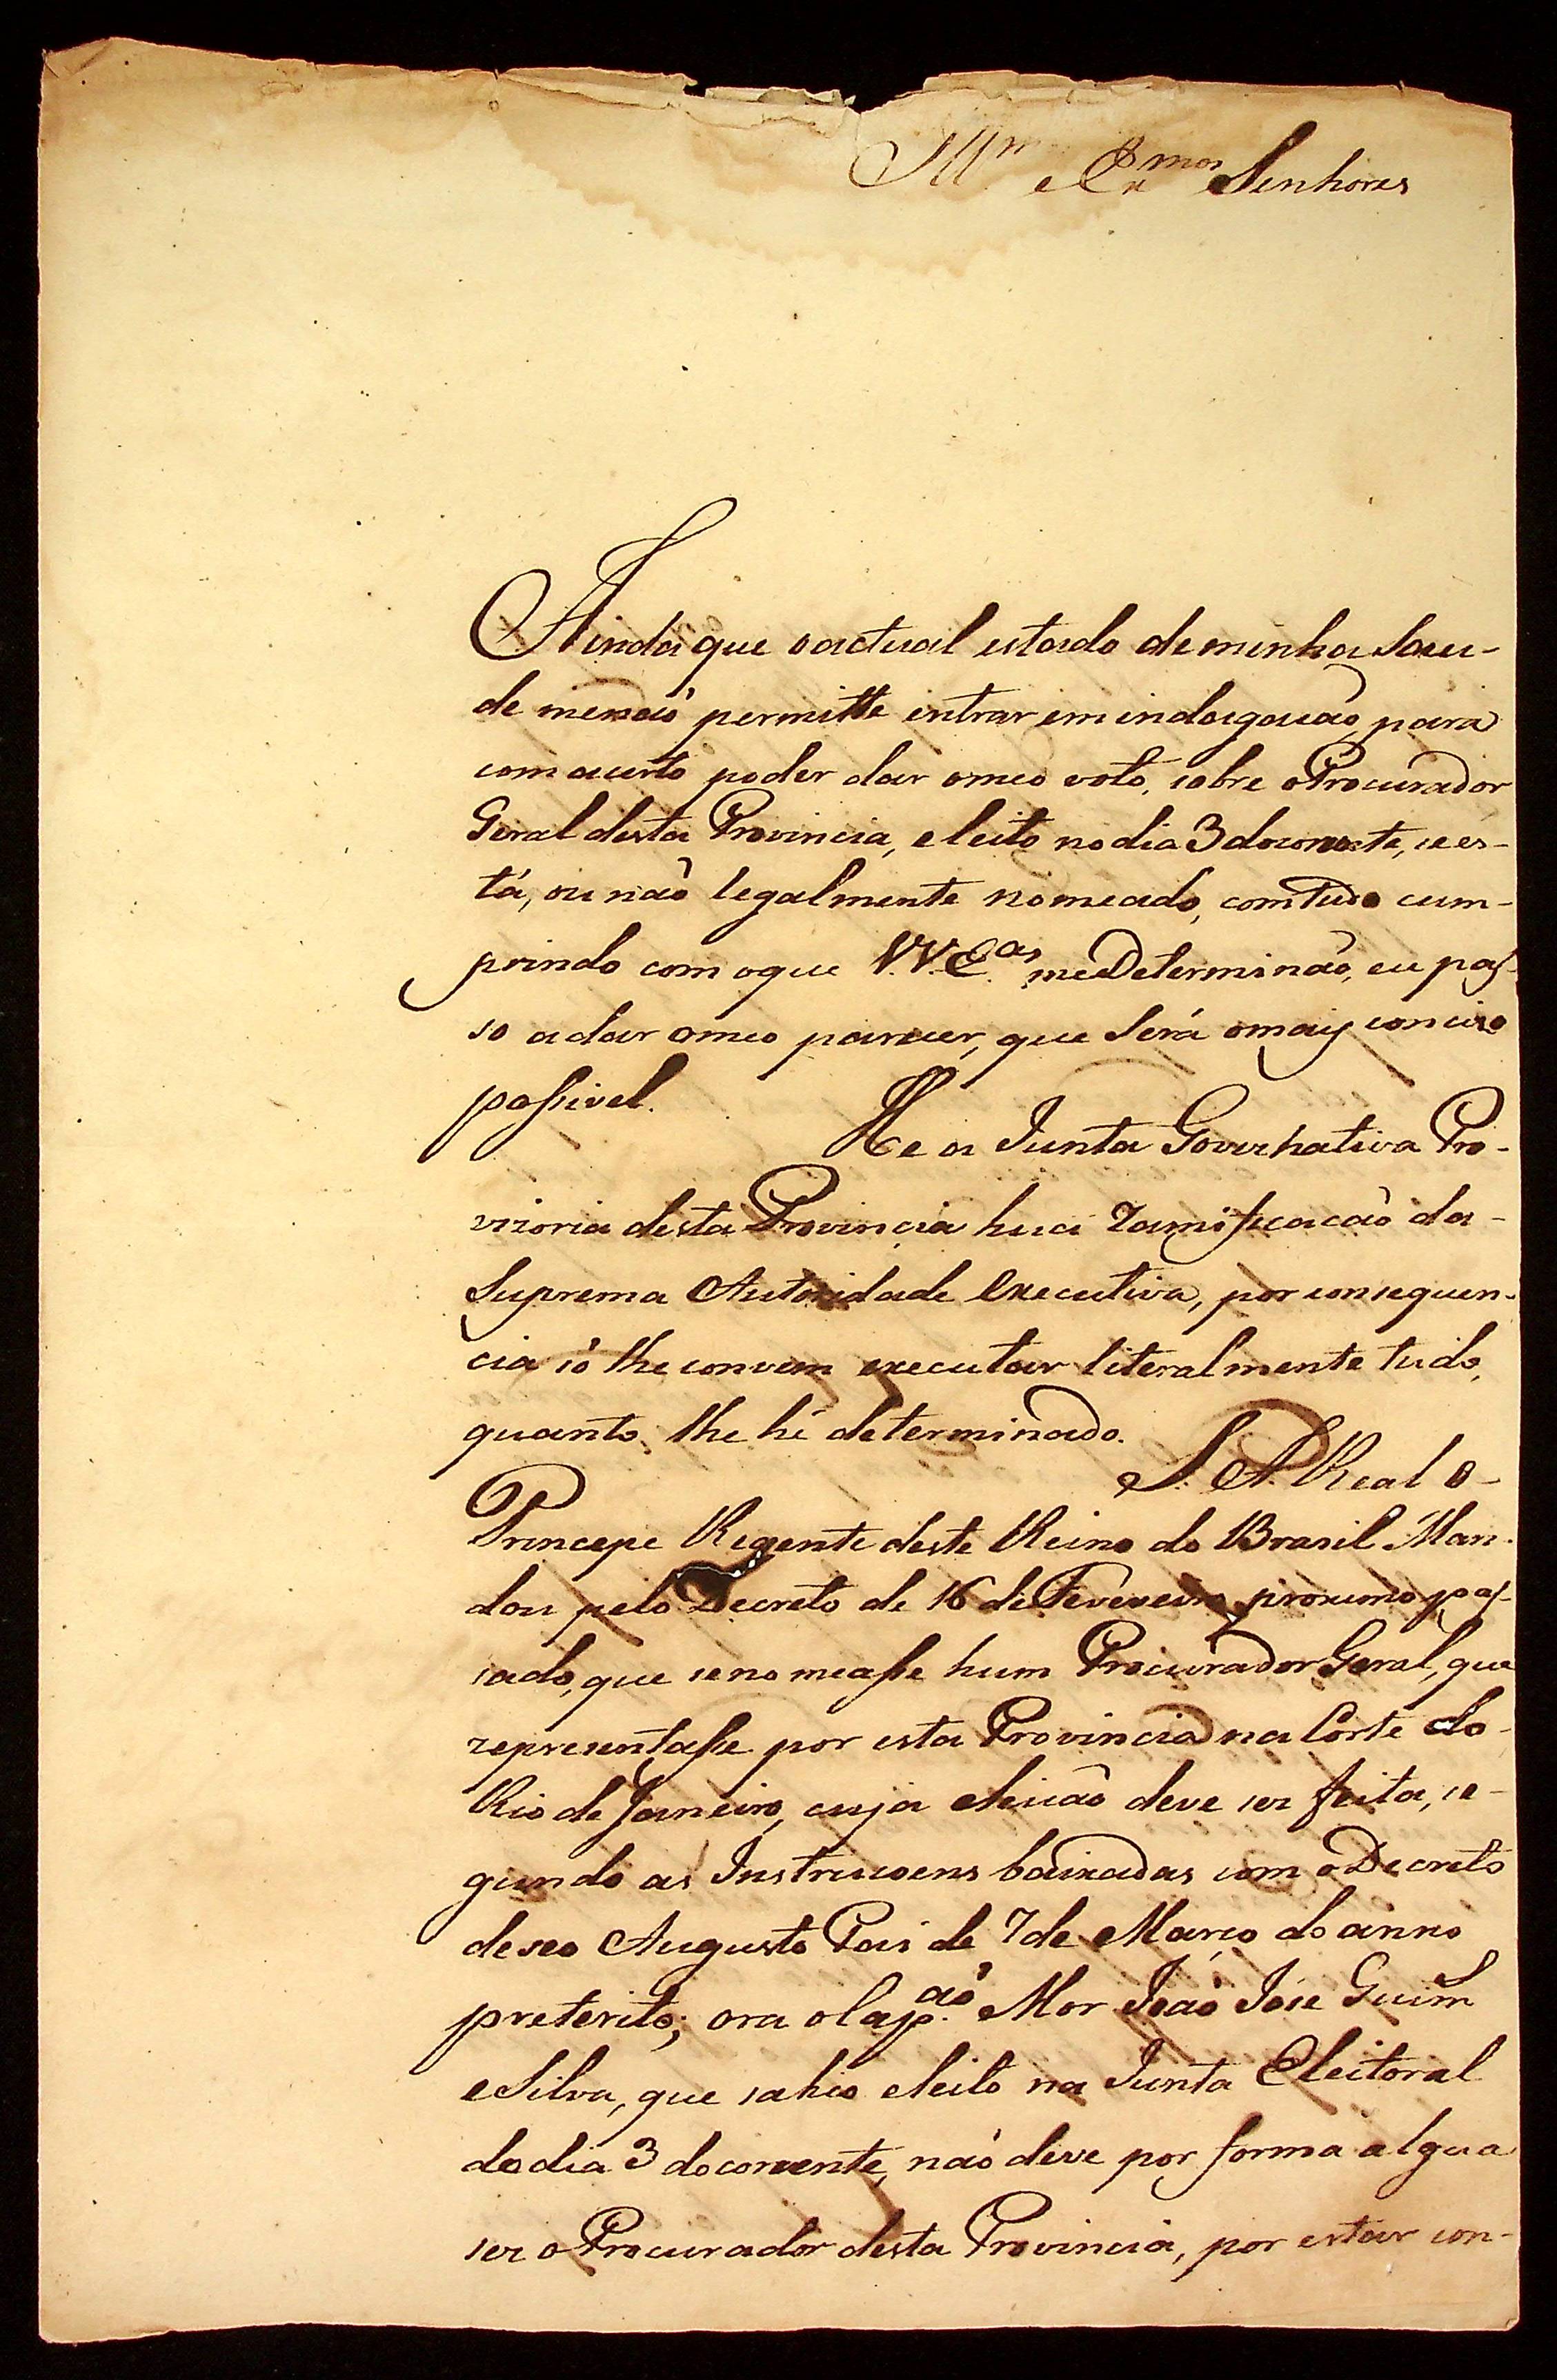 Ill.mos e Ex.mos Senhores
Ainda que o actual estado de minha Sau-
de me naõ permitte entrar em indagacaõ, para
com acerto poder dar o meo voto, sobre o Procurador
Geral desta Provincia, eleito no dia 3 do corrente, se es-
tá, ou naõ legalmente nomeado, com tudo cum-
prindo com o que V.V. E.as me Determinaõ, eu pas-
so a dar o meo parecer, que Será o mais conciso
possivel.
He a Junta Governativa Pro-
vizoria desta Provincia hua ramificacaõ da
Suprema Autoridade Executiva, por consequen-
cia só lhe convem executar literalmente tudo,
quanto lhe hé determinado.
S. A. Real o
Princepe Regente deste Reino do Brasil Man-
dou pelo Decreto de 16 de Fevereiro proximo pas-
sado, que se nomeasse hum Procurador Geral, que
representasse por esta Provincia na Corte do
Rio de Janeiro, cuja eleicaõ deve ser feita, se-
gundo as Instrucoens baixadas com o Decreto
de seo Augusto Pai de 7 de Março do anno
preterito; ora o Cap.aõ Mor Joaõ Jose Guim
e Silva, que sahio eleito na Junta Eleitoral
do dia 3 do corrente, naõ deve por forma algua
ser o Procurador desta Provincia, por estar con-